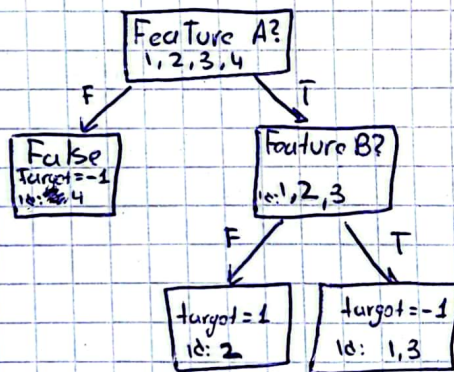 Feature A?
1, 2, 3, 4
F
T
False
Target=-1
id: 4
Feature B?
id: 1, 2, 3
F
T
target=1
id: 2
target=-1
id: 1, 3